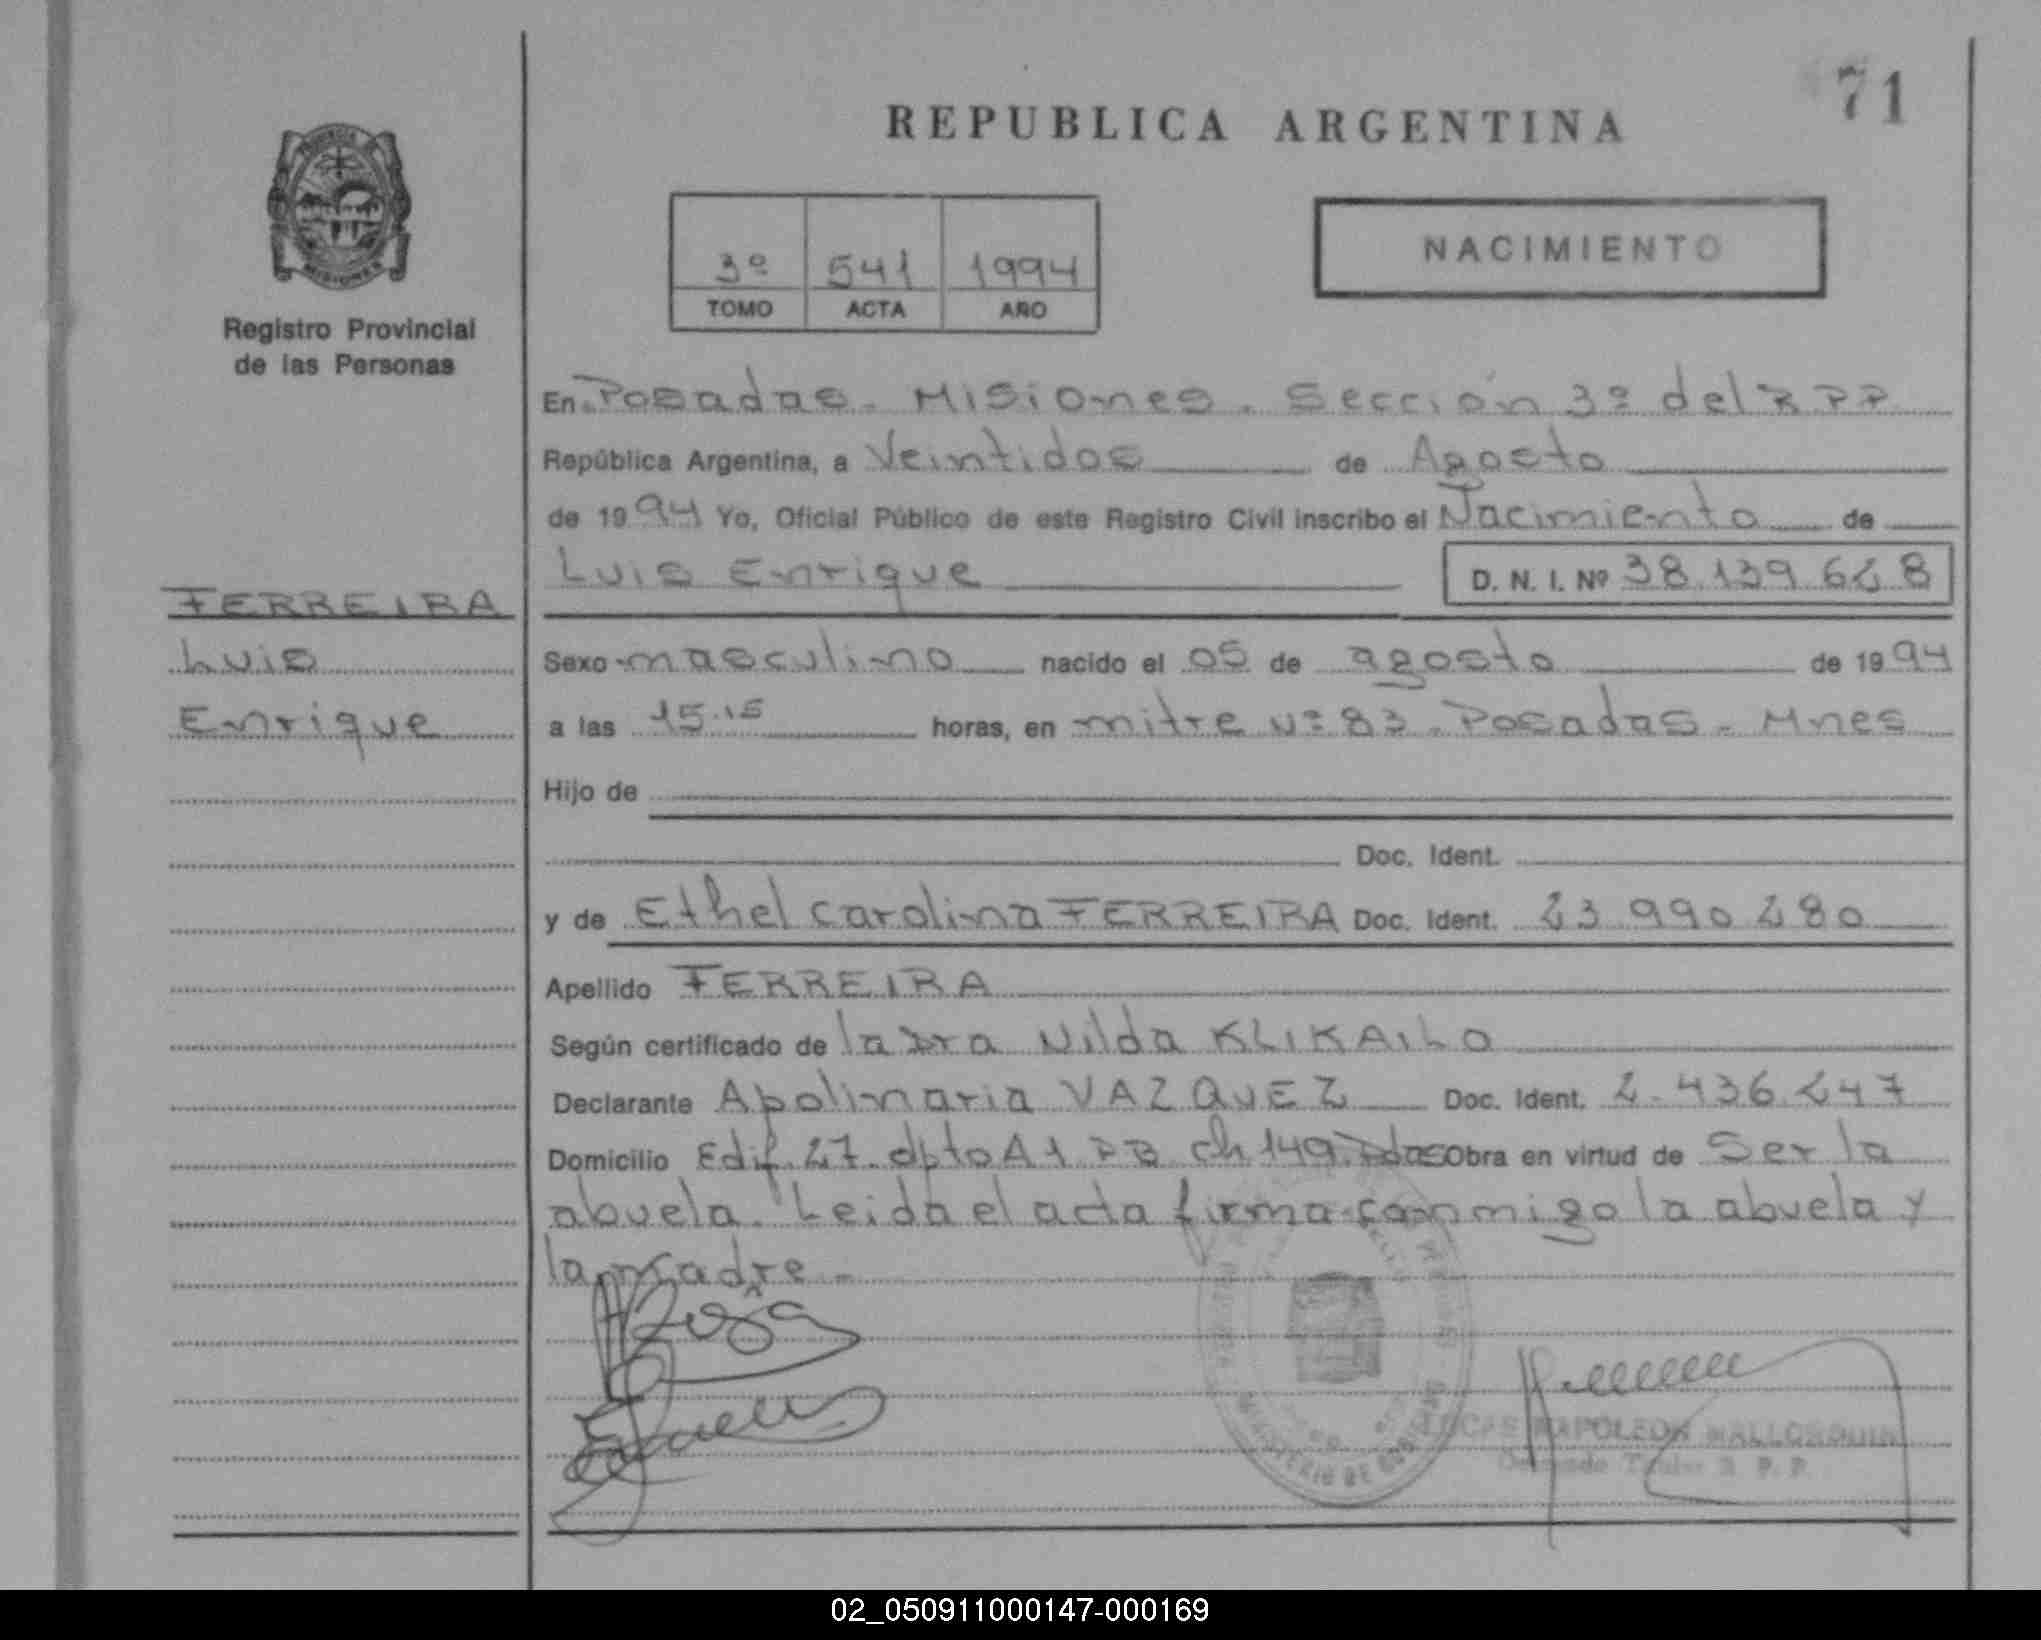 71
REPUBLICA ARGENTINA
PROVINCIA
MISIONES
Registro Provincial
de las Personas
3º 541 1994
TOMO ACTA AÑO
NACIMIENTO
En Posadas - Misiones. Sección 3º del R P P
República Argentina, a Veintidos de Agosto
de 1994 Yo, Oficial Público de este Registro Civil inscribo el Nacimiento de
Luis Enrique D. N. I. Nº 38.139.628
FERREIRA
Luis
Enrique
Sexo masculino nacido el 05 de agosto de 1994
a las 15.15 horas, en mitre nº 83. Posadas - Mnes
Hijo de
Doc. Ident.
y de Ethel Carolina FERREIRA Doc. Ident. 23 990 280
Apellido FERREIRA
Según certificado de la Dra Nilda KLIKAILO
Declarante Apolinaria VAZQUEZ Doc. Ident. 2.436.247
Domicilio Edif. 27. dpto A1 PB ch 149. Pdas Obra en virtud de Ser la
abuela. Leida el acta firma conmigo la abuela y
la madre.-
MINISTERIO DE GOBIERNO
LUCAS NAPOLEON MALLORQUIN
Delegado Titular R. P. P.
02_050911000147-000169